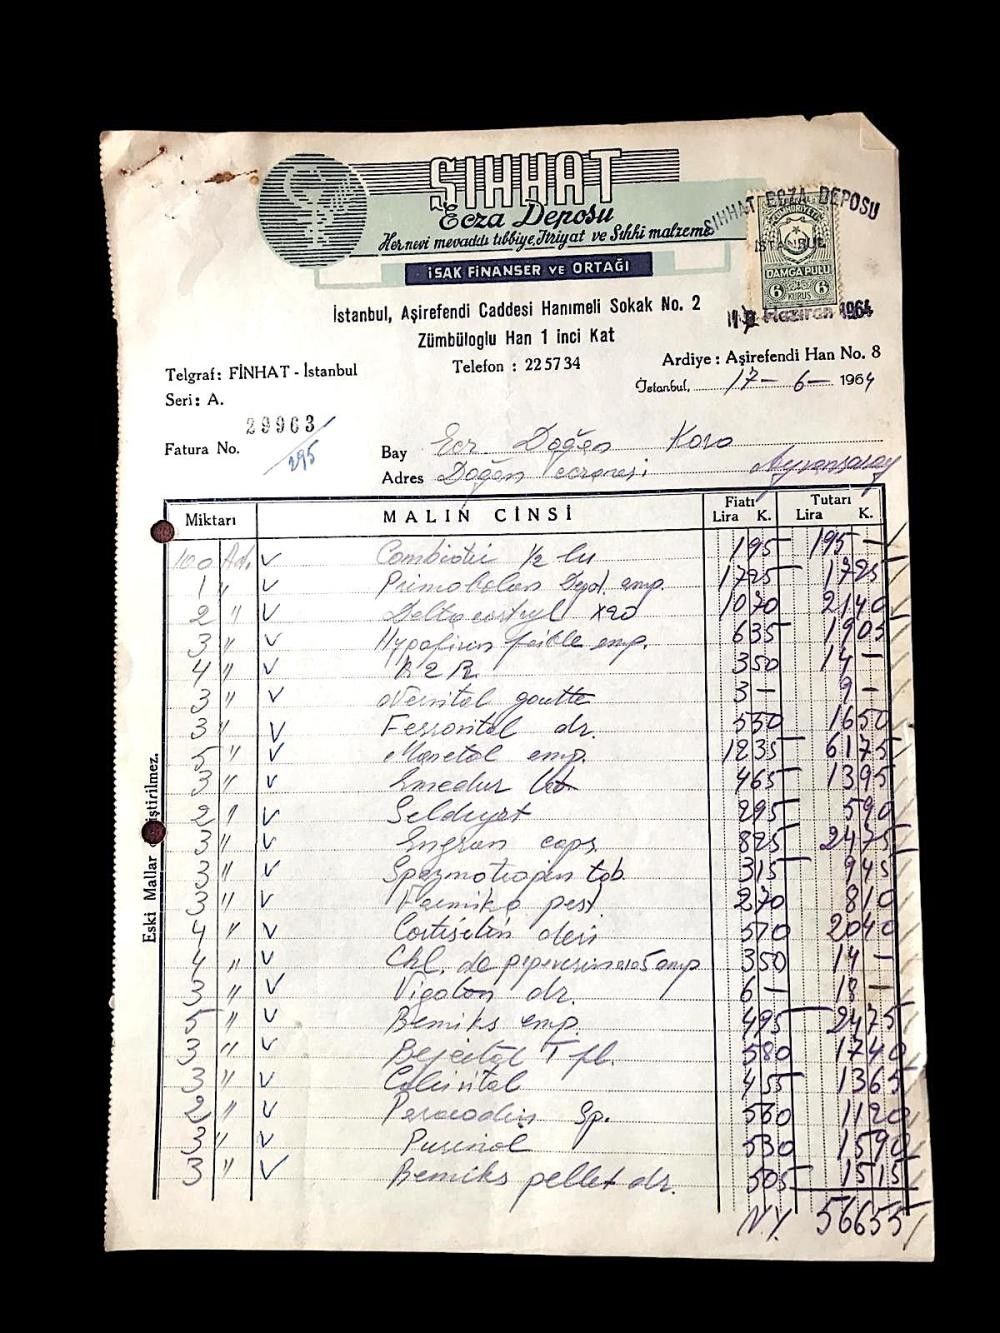 SIHHAT
Ecza Deposu
Her nevi mevaddı tıbbiye, Itriyat ve Sıhhî malzeme
İSAK FİNANSER VE ORTAĞI
SIHHAT ECZA DEPOSU
İSTANBUL
DAMGA PULU
6 KURUŞ 6
Haziran 1964
İstanbul, Aşirefendi Caddesi Hanımeli Sokak No. 2
Zümbüloglu Han 1 inci Kat
Telefon : 225734
Ardiye : Aşirefendi Han No. 8
Telgraf: FİNHAT - İstanbul
İstanbul, 17-6-1964
Seri: A.
29963
Fatura No. 295
Bay Ecz Doğan Kora
Adres Doğan eczanesi Ayvansaray
Miktarı MALIN CİNSİ Fiatı Lira K. Tutarı Lira K.
100 Ad. Combiotic 1/2 lu 195 195 -
1 " Primobolan Depot amp. 1725 1725
2 " Deltacortryl x20 1070 2140
3 " faible amp. 635 1905
4 " 350 14 -
3 " goutte 3 - 9 -
3 " Ferrontol dr. 550 1650
5 " amp. 1235 6175
3 " 465 1395
2 " 295 590
3 " Engran caps 825 2475
3 " Spazmotropin tab 315 945
3 " 270 810
4 " 510 2040
4 " Chl. de amp 350 14 -
3 " Vigoton dr. 6 - 18 -
5 " Bemiks amp. 495 2475
3 " fl. 580 1740
3 " 455 1365
2 " Peracodin Sp. 560 1120
3 " Purinol 530 1590
3 " Bemiks pellet dr. 505 1515
N.Y. 56655
Eski Mallar iştirilmez.